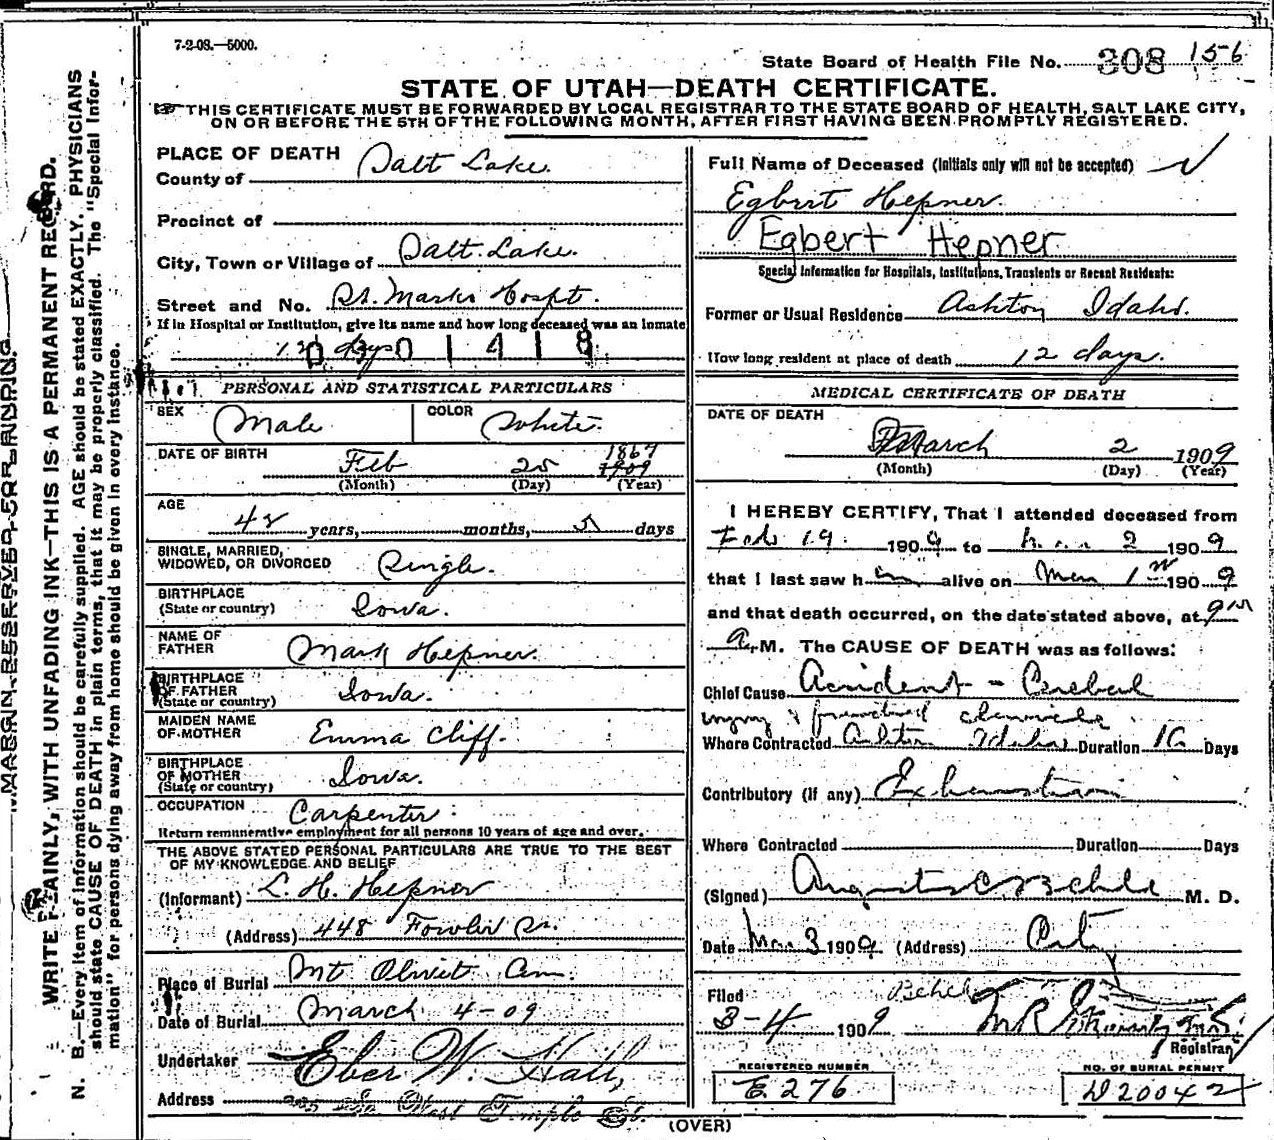 7-2-08.—5000.
State Board of Health File No. 308 156
STATE OF UTAH—DEATH CERTIFICATE.
THIS CERTIFICATE MUST BE FORWARDED BY LOCAL REGISTRAR TO THE STATE BOARD OF HEALTH, SALT LAKE CITY,
ON OR BEFORE THE 5TH OF THE FOLLOWING MONTH, AFTER FIRST HAVING BEEN PROMPTLY REGISTERED.
MARGIN RESERVED FOR BINDING
WRITE PLAINLY, WITH UNFADING INK—THIS IS A PERMANENT RECORD.
N. B.—Every item of information should be carefully supplied. AGE should be stated EXACTLY. PHYSICIANS
should state CAUSE OF DEATH in plain terms, that it may be properly classified. The "Special Infor-
mation" for persons dying away from home should be given in every instance.
PLACE OF DEATH
County of Salt Lake.
Precinct of
City, Town or Village of Salt Lake.
Street and No. St. Marks Hospt.
If in Hospital or Institution, give its name and how long deceased was an inmate
12 days 0 3 0 1 4 1 8
PERSONAL AND STATISTICAL PARTICULARS
SEX Male COLOR White.
DATE OF BIRTH Feb 25 1867 1909
(Month) (Day) (Year)
AGE
42 years, months, 5 days
SINGLE, MARRIED,
WIDOWED, OR DIVORCED Single.
BIRTHPLACE
(State or country) Iowa.
NAME OF
FATHER Mark Hepner.
BIRTHPLACE
OF FATHER
(State or country) Iowa.
MAIDEN NAME
OF MOTHER Emma Cliff.
BIRTHPLACE
OF MOTHER
(State or country) Iowa.
OCCUPATION Carpenter.
Return remunerative employment for all persons 10 years of age and over.
THE ABOVE STATED PERSONAL PARTICULARS ARE TRUE TO THE BEST
OF MY KNOWLEDGE AND BELIEF
(Informant) L. H. Hepner
(Address) 448 Fowler
Place of Burial Mt Olivet
Date of Burial March 4-09
Undertaker Eber W. Hall,
Address So West Temple St.
Full Name of Deceased (Initials only will not be accepted)
Egbert Hepner.
Egbert Hepner
Special Information for Hospitals, Institutions, Transients or Recent Residents:
Former or Usual Residence Ashton Idaho.
How long resident at place of death 12 days.
MEDICAL CERTIFICATE OF DEATH
DATE OF DEATH
March 2 1909
(Month) (Day) (Year)
I HEREBY CERTIFY, That I attended deceased from
Feb 19. 1909 to Mar 2 1909
that I last saw him alive on Mar 1st 1909
and that death occurred, on the date stated above, at 9
A.M. The CAUSE OF DEATH was as follows:
Chief Cause Accident - Cerebral
injury
Where Contracted Ashton Idaho Duration Days
Contributory (if any) Exhaustion
Where Contracted Duration Days
(Signed) Augustus C Behle M. D.
Date Mar. 3 1909. (Address) Cit
Filed Behle
3-4 1909
Registrar
REGISTERED NUMBER
E. 276
NO. OF BURIAL PERMIT
D 20042
(OVER)